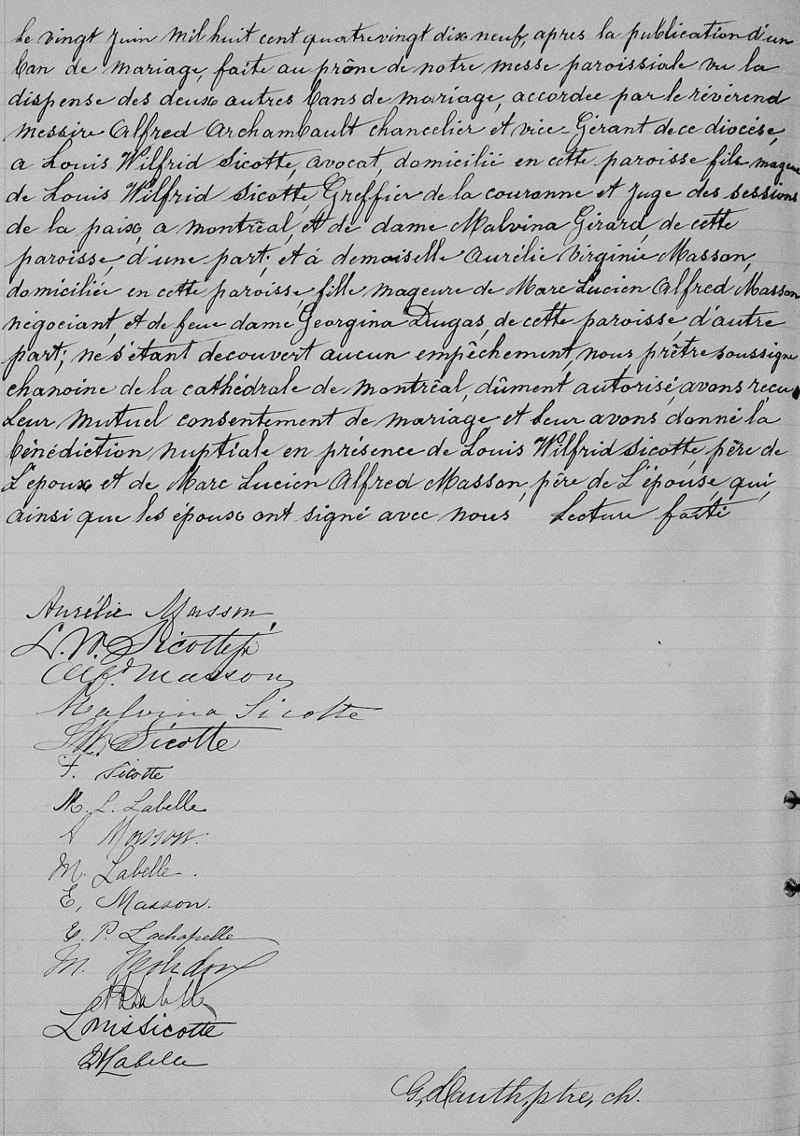 Le vingt Juin mil huit cent quatrevingt dix neuf, apres la publication d'un
ban de mariage, faite au prône de notre messe paroissiale vu la
dispense des deux autres bans de mariage, accordée par le révérend
messire Alfred Archambault chancelier et vice-Gérant de ce diocése,
a Louis Wilfrid Sicotte, avocat, domicilié en cette paroisse fils mageur
de Louis Wilfrid Sicotte, Greffier de la couronne et Juge des sessions
de la paix, a montréal, et de dame Malvina Girard, de cette
paroisse, d'une part; et á demoiselle Aurélie Virginie Masson,
domiciliée en cette paroisse, fille mageure de Marc Lucien Alfred Masson
négociant, et de feue dame Georgina Dugas, de cette paroisse, d'autre
part; ne s'étant decouvert aucun empêchement, nous prêtre soussigné
chanoine de la cathédrale de montréal, dûment autorisé, avons recu
leur mutuel consentement de mariage et leur avons donné la
bénédiction nuptiale en présence de Louis Wilfrid Sicotte, père de
L'époux et de Marc Lucien Alfred Masson, père de L'épouse, qui,
ainsi que les époux ont signé avec nous Lecture faite
Aurélie Masson
L. W. Sicotte
Alf. Masson
Malvina Sicotte
L. W. Sicotte
F. Sicotte
M. L. Labelle
A Masson.
M. Labelle.
E. Masson.
E. P. Lachapelle
M.
Labelle
Louis Sicotte
Labelle
G. Dauth, ptre, ch.